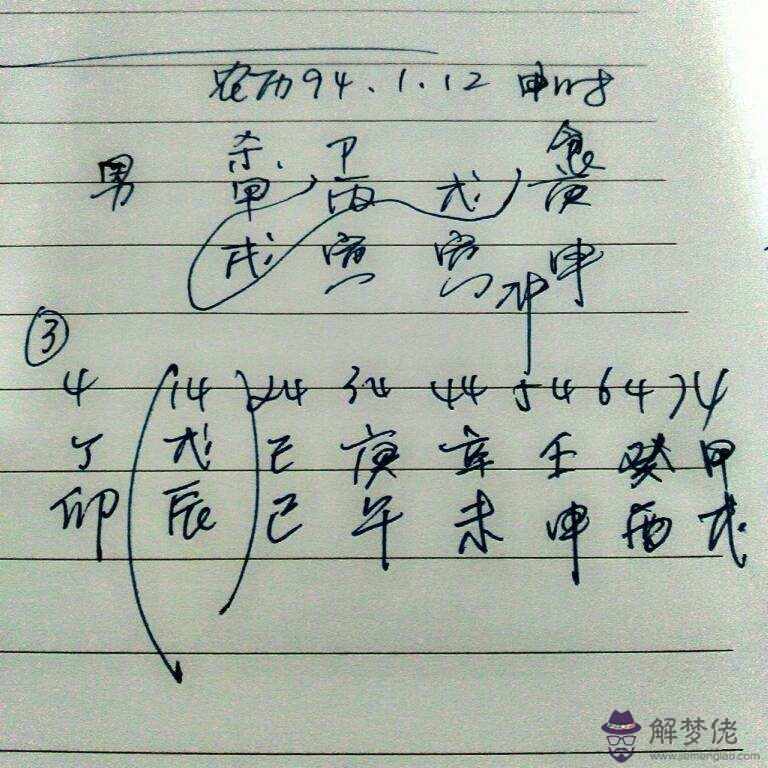 农历94.1.12 申时
杀 卩 食
男 甲 丙 戊 庚
戌 寅 寅 申
冲
③
4 14 24 34 44 54 64 74
丁 戊 己 庚 辛 壬 癸 甲
卯 辰 巳 午 未 申 酉 戌
解梦佬
www.jiemenglao.com